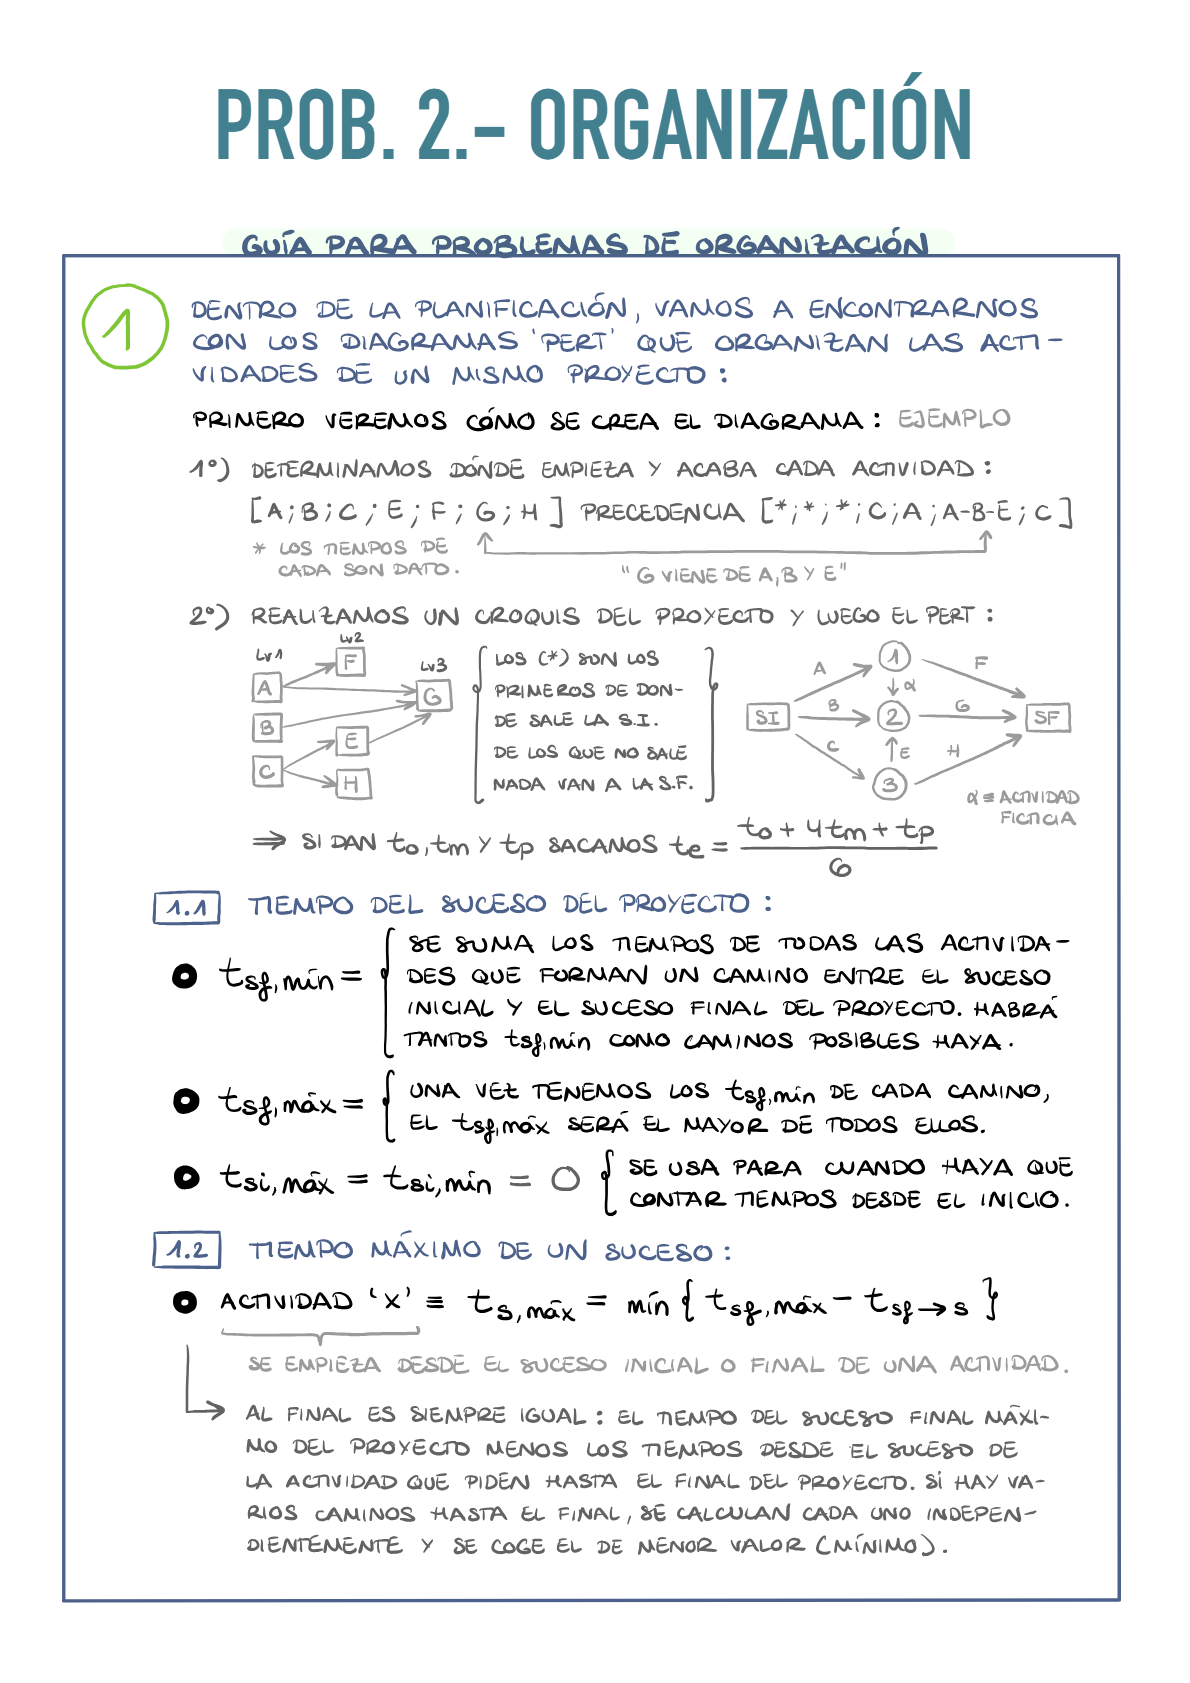 PROB. 2.- ORGANIZACIÓN
GUÍA PARA PROBLEMAS DE ORGANIZACIÓN
1
DENTRO DE LA PLANIFICACIÓN, VAMOS A ENCONTRARNOS
CON LOS DIAGRAMAS 'PERT' QUE ORGANIZAN LAS ACTI-
VIDADES DE UN MISMO PROYECTO:
PRIMERO VEREMOS CÓMO SE CREA EL DIAGRAMA: EJEMPLO
1º) DETERMINAMOS DÓNDE EMPIEZA Y ACABA CADA ACTIVIDAD:
[A;B;C;E;F;G;H] PRECEDENCIA [*;*;*;C;A;A-B-E;C]
* LOS TIEMPOS DE
CADA SON DATO.
"G VIENE DE A,B Y E"
2º) REALIZAMOS UN CROQUIS DEL PROYECTO Y LUEGO EL PERT:
Lv1
Lv2
Lv3
A
F
G
B
E
C
H
LOS (*) SON LOS
PRIMEROS DE DON-
DE SALE LA S.I.
DE LOS QUE NO SALE
NADA VAN A LA S.F.
SI
A
1
F
α
B
2
G
SF
C
E
H
3
α ≡ ACTIVIDAD
FICTICIA
⇒ SI DAN to, tm Y tp SACAMOS te = (to + 4tm + tp) / 6
1.1 TIEMPO DEL SUCESO DEL PROYECTO:
tsf, mín = { SE SUMA LOS TIEMPOS DE TODAS LAS ACTIVIDA-
DES QUE FORMAN UN CAMINO ENTRE EL SUCESO
INICIAL Y EL SUCESO FINAL DEL PROYECTO. HABRÁ
TANTOS tsf,mín COMO CAMINOS POSIBLES HAYA.
tsf, máx = { UNA VEZ TENEMOS LOS tsf,mín DE CADA CAMINO,
EL tsf,máx SERÁ EL MAYOR DE TODOS ELLOS.
tsi, máx = tsi, mín = 0 { SE USA PARA CUANDO HAYA QUE
CONTAR TIEMPOS DESDE EL INICIO.
1.2 TIEMPO MÁXIMO DE UN SUCESO:
ACTIVIDAD 'X' ≡ ts, máx = mín { tsf, máx - tsf→s }
SE EMPIEZA DESDE EL SUCESO INICIAL O FINAL DE UNA ACTIVIDAD.
AL FINAL ES SIEMPRE IGUAL: EL TIEMPO DEL SUCESO FINAL MÁXI-
MO DEL PROYECTO MENOS LOS TIEMPOS DESDE EL SUCESO DE
LA ACTIVIDAD QUE PIDEN HASTA EL FINAL DEL PROYECTO. SI HAY VA-
RIOS CAMINOS HASTA EL FINAL, SE CALCULAN CADA UNO INDEPEN-
DIENTEMENTE Y SE COGE EL DE MENOR VALOR (MÍNIMO).